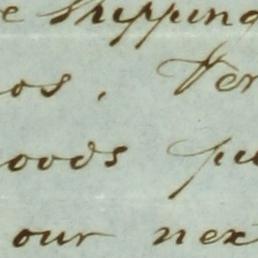 e Shipping
os. Ver
oods pu
our nex